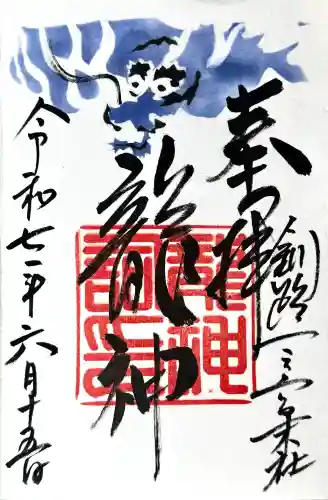 奉拝
釧路一
社
龍神
龍神
令和七年六月十五日